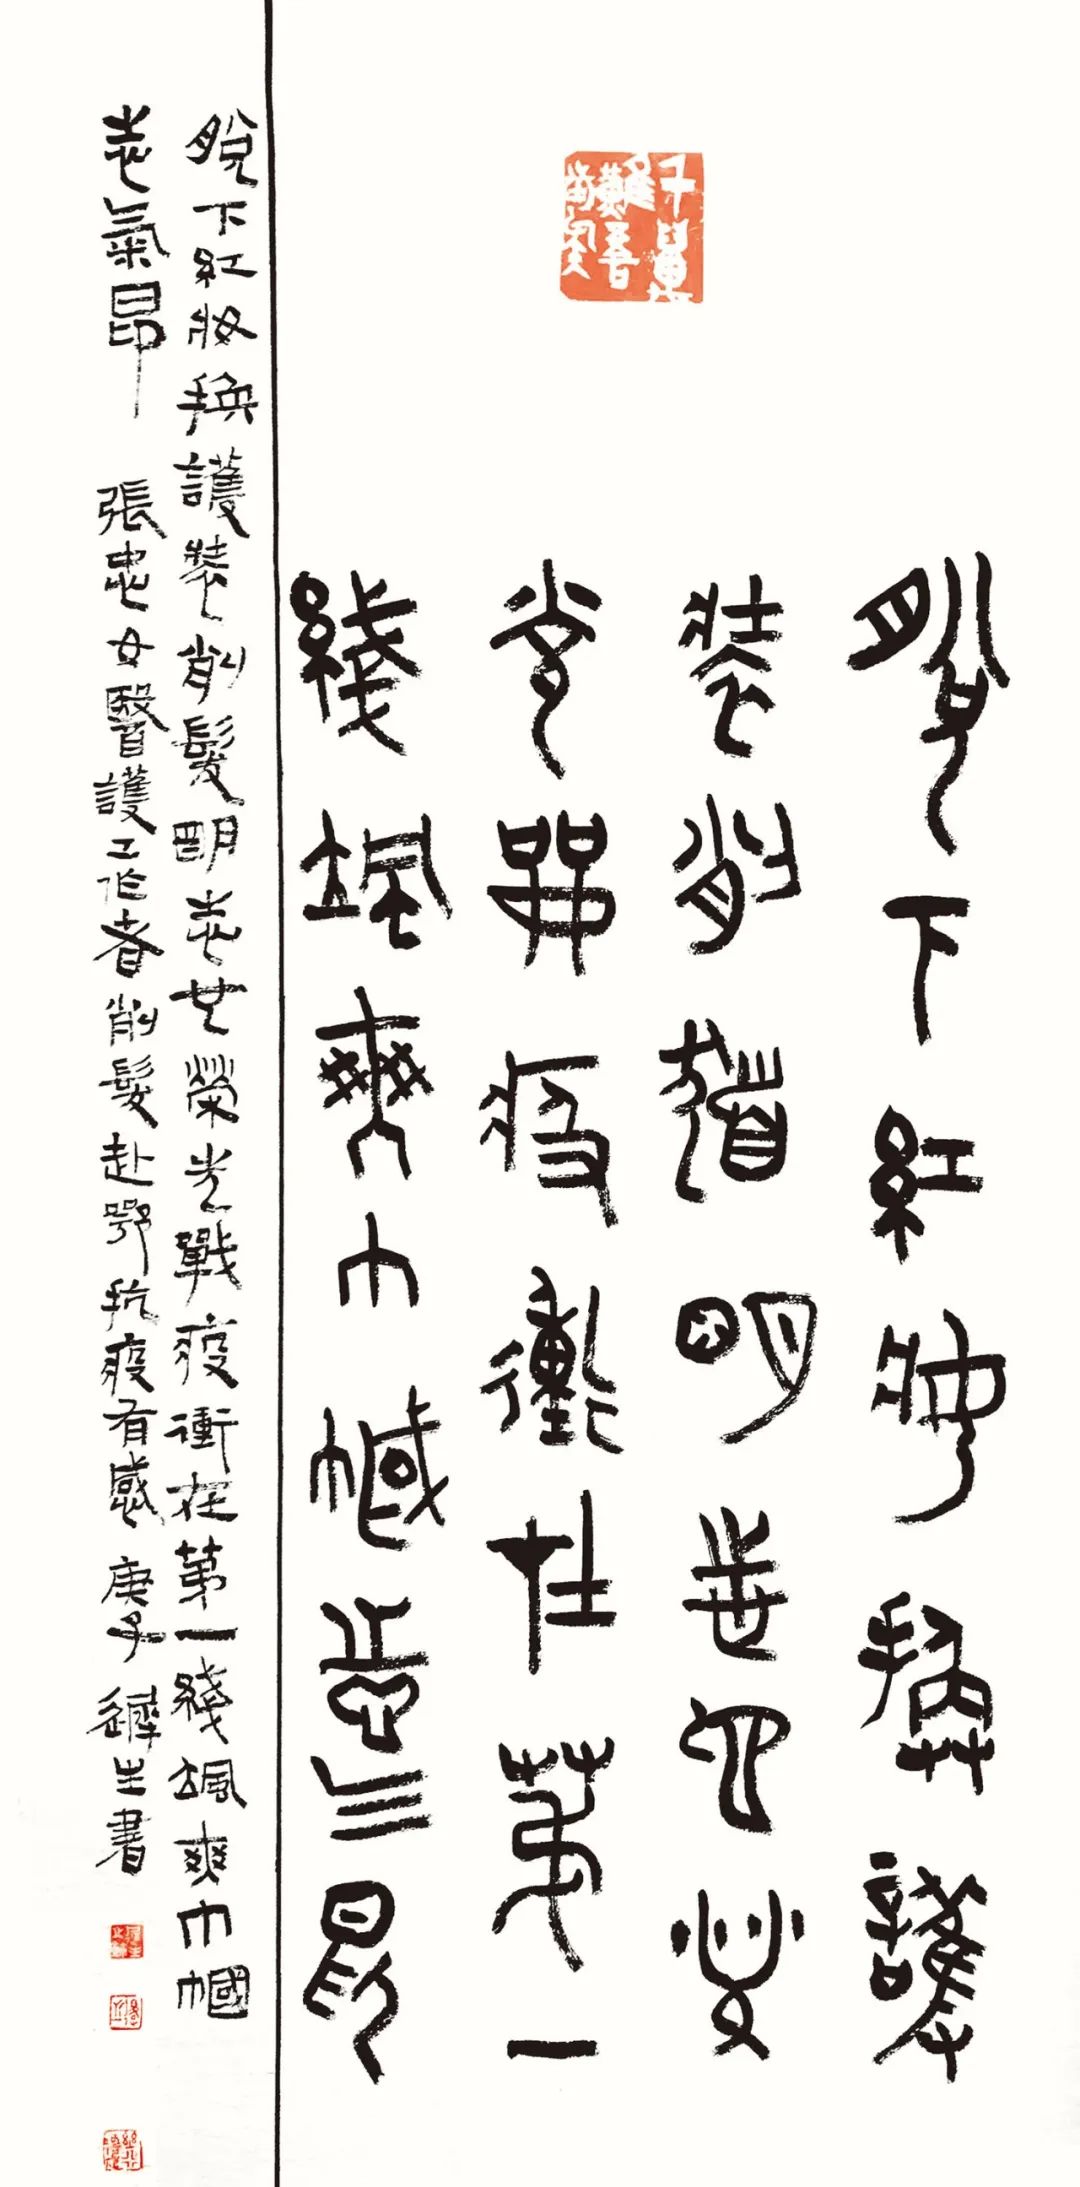 脫下紅妝換護
裝削髮明志也榮
光戰疫衝在第一
綫颯爽巾幗志氣昂
脫下紅妝換護裝削髮明志也榮光戰疫衝在第一綫颯爽巾幗
志氣昂 張忠女醫護工作者削髮赴鄂抗疫有感 庚子 生書